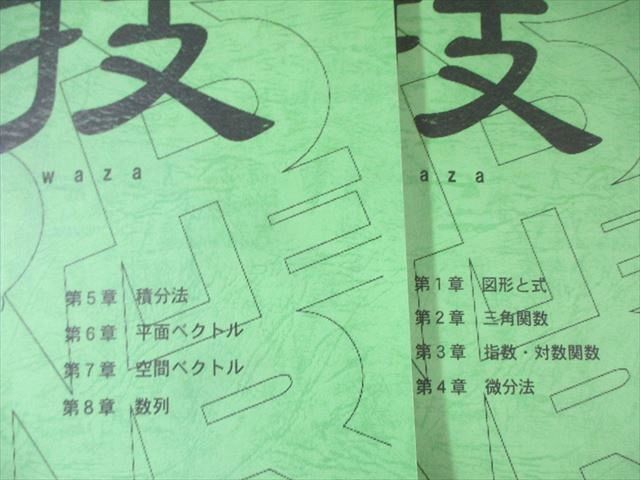 技
waza
第5章 積分法
第6章 平面ベクトル
第7章 空間ベクトル
第8章 数列
技
aza
第1章 図形と式
第2章 三角関数
第3章 指数・対数関数
第4章 微分法